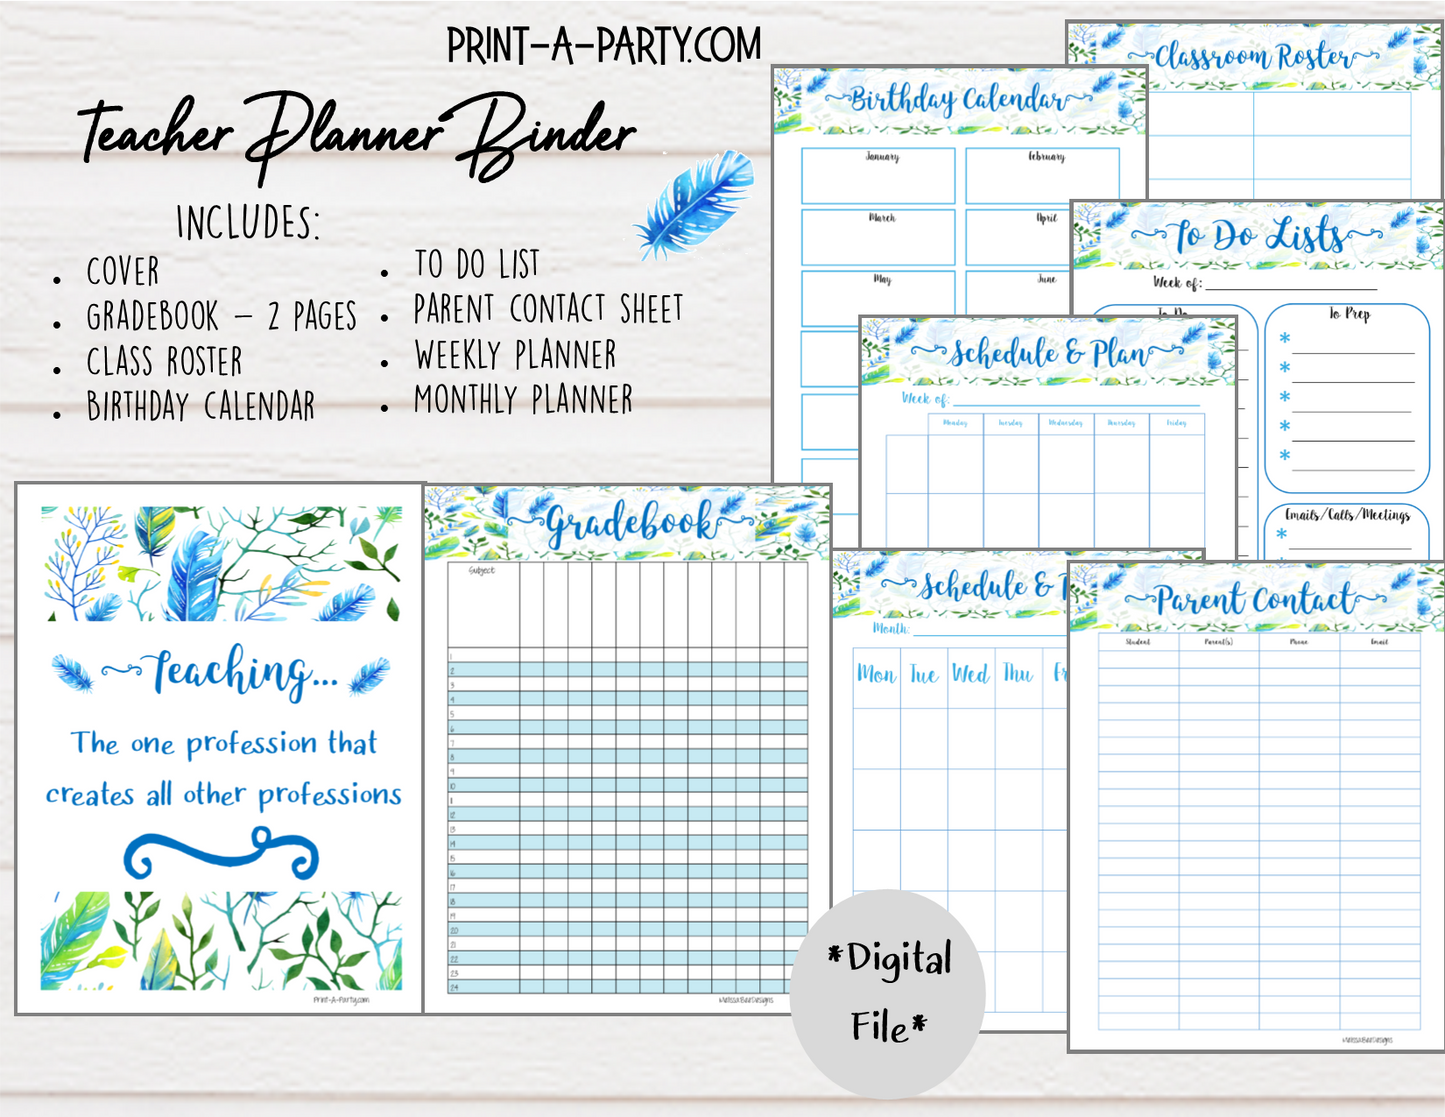 PRINT-A-PARTY.COM
Teacher Planner Binder
INCLUDES:
• COVER
• GRADEBOOK – 2 PAGES
• CLASS ROSTER
• BIRTHDAY CALENDAR
• TO DO LIST
• PARENT CONTACT SHEET
• WEEKLY PLANNER
• MONTHLY PLANNER
Teaching...
The one profession that
creates all other professions
Print-A-Party.com
Gradebook
Subject
1
2
3
4
5
6
7
8
9
10
11
12
13
14
15
16
17
18
19
20
21
22
23
24
MelissaBearDesigns
Birthday Calendar
January February
March April
May June
Classroom Roster
To Do Lists
Week of:
To Do To Prep
*
*
*
*
*
Emails/Calls/Meetings
*
Schedule & Plan
Week of:
Monday Tuesday Wednesday Thursday Friday
Schedule & P
Month:
Mon Tue Wed Thu Fr
Parent Contact
Student Parent(s) Phone Email
MelissaBearDesigns
*Digital
File*